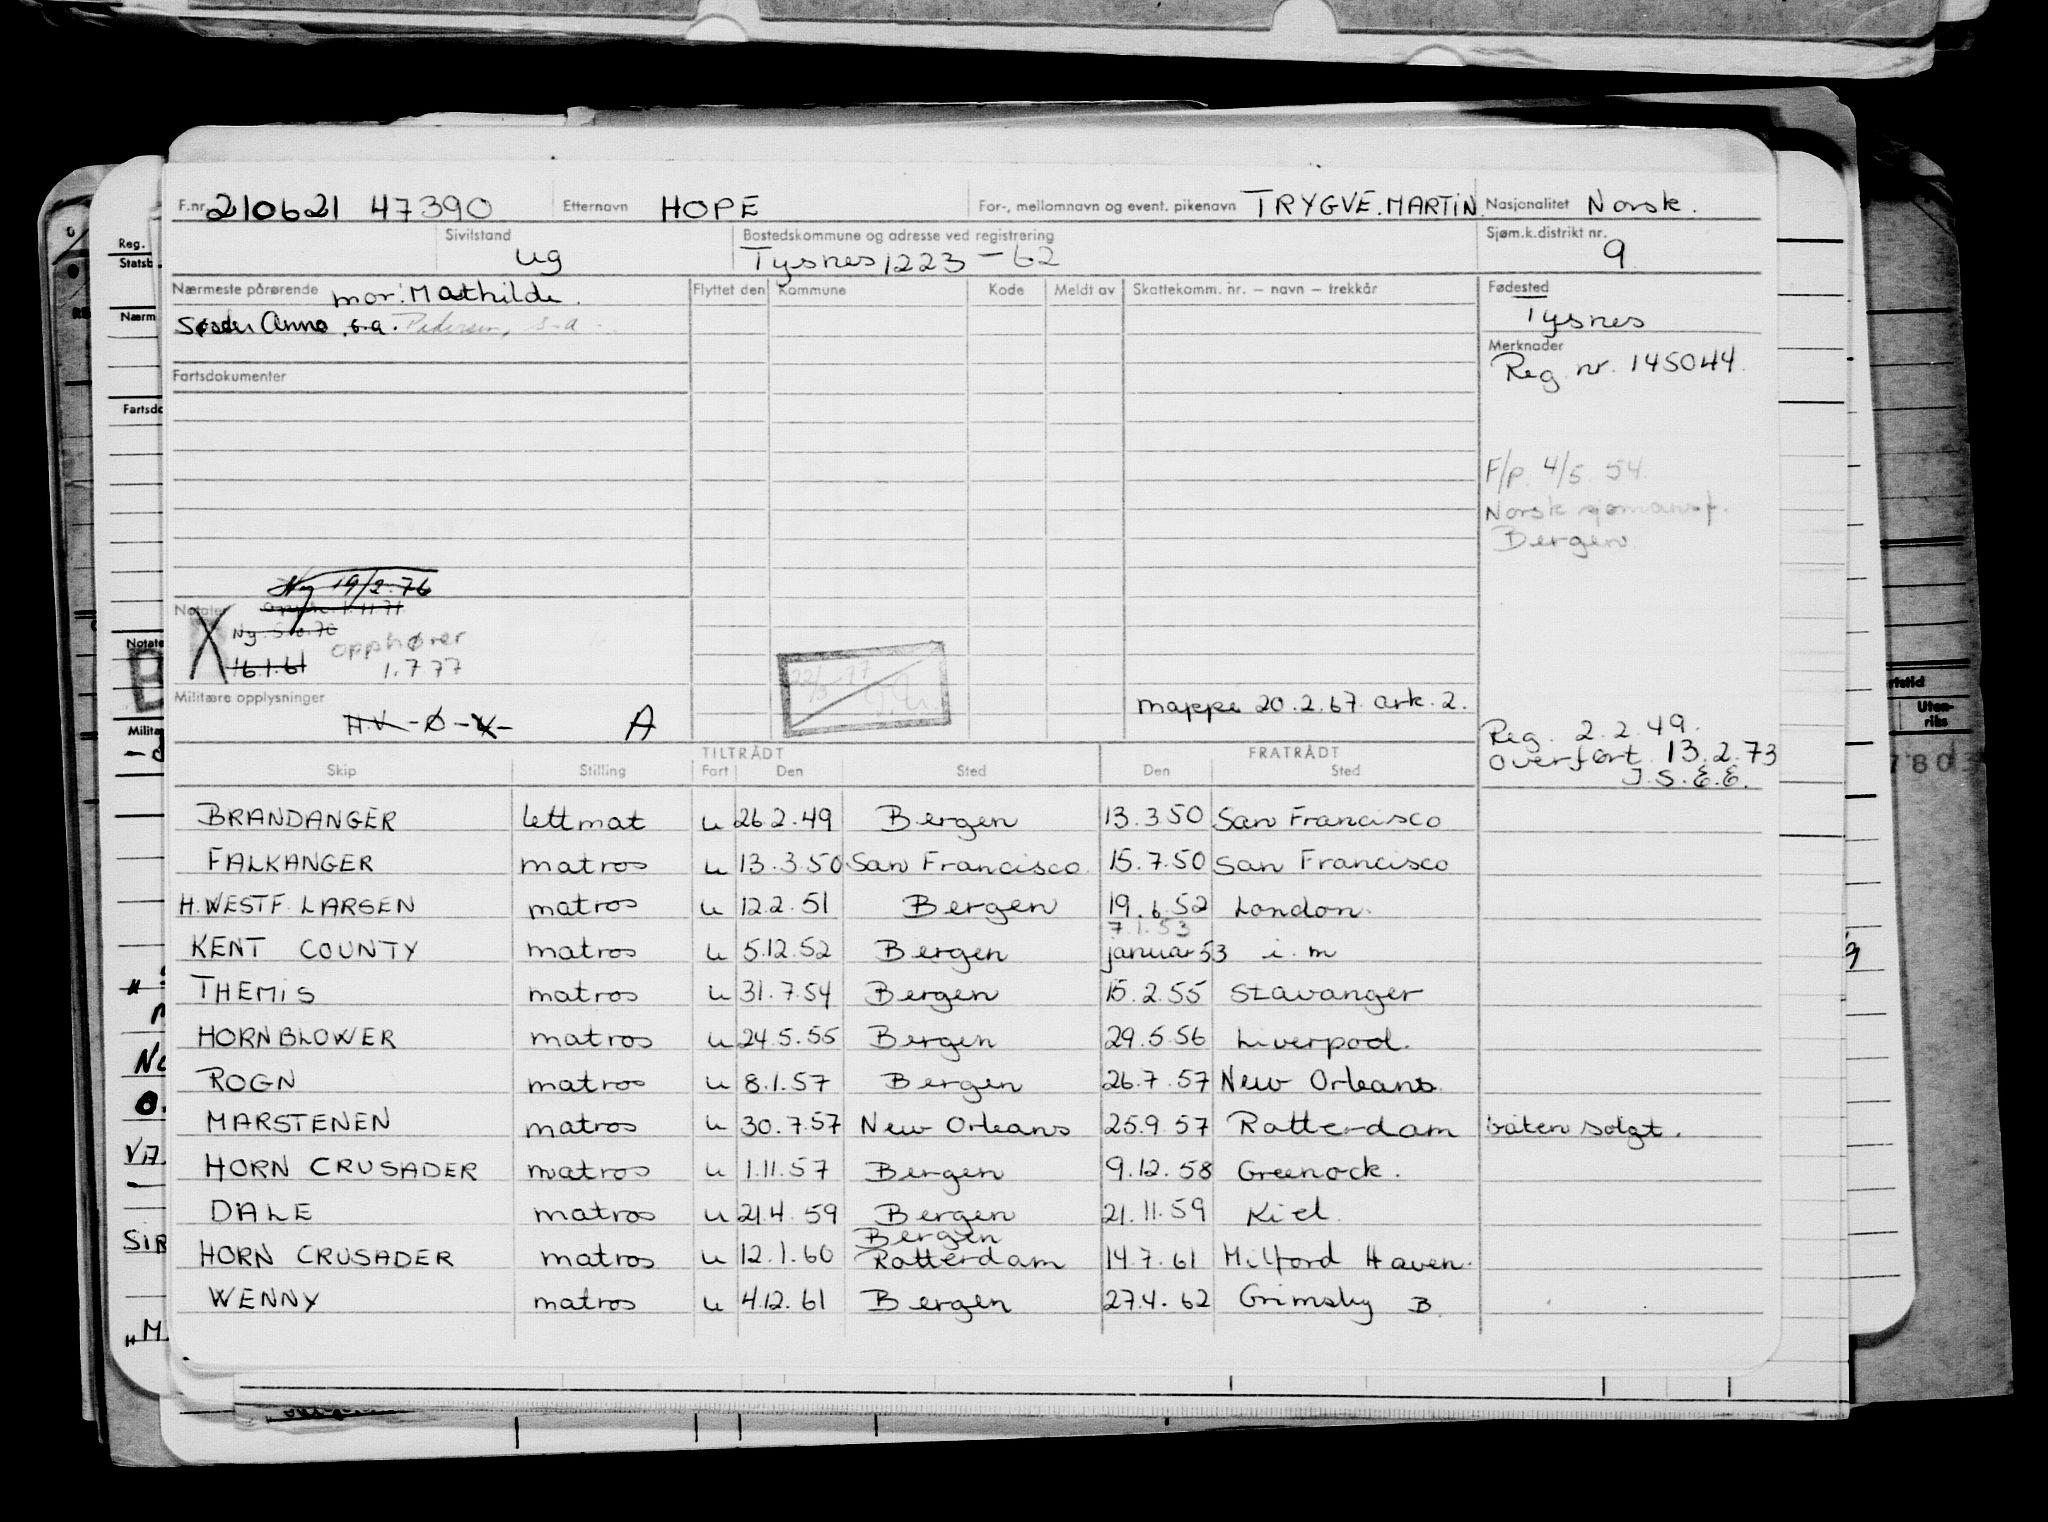 F.nr. 210621 47390 Etternavn HOPE For-, mellomnavn og event. pikenavn TRYGVE. MARTIN. Nasjonalitet Norsk.
Sivilstand ug Bostedskommune og adresse ved registrering Tysnes 1223 - 62 Sjøm.k.distrikt nr. 9
Nærmeste pårørende mor: Mathilde. Flyttet den Kommune Kode Meldt av Skattekomm. nr. – navn – trekkår Fødested
Søster Anna s.a. Pedersen, s-a Tysnes
Merknader
Fartsdokumenter Reg. nr. 145044
F/p. 4/5 54.
Norsk
Bergen
Ny 19/2-76
Notater 1.11.71
Ny 70
opphører
16.1.61 1.7 77
22/3-77
Militære opplysninger H.V.-Ø-V- A mappe 20.2.67. ark. 2.
Reg. 2.2.49.
overført 13.2.73
J.S.E.E.
TILTRÅDT FRATRÅDT
Skip Stilling Fart Den Sted Den Sted
BRANDANGER lettmat u 26.2.49 Bergen 13.3.50 San Francisco
FALKANGER matros u 13.3.50 San Francisco 15.7.50 San Francisco
H. WESTF. LARSEN matros u 12.2.51 Bergen 19.6.52 London.
7.1.53
KENT COUNTY matros u 5.12.52 Bergen januar 53 i.m
THEMIS matros u 31.7.54 Bergen 15.2.55 Stavanger
HORNBLOWER matros u 24.5.55 Bergen 29.5.56 Liverpool.
ROGN matros u 8.1.57 Bergen 26.7.57 New Orleans.
MARSTENEN matros u 30.7.57 New Orleans 25.9.57 Rotterdam båten solgt.
HORN CRUSADER matros u 1.11.57 Bergen 9.12.58 Greenock.
DALE matros u 21.4.59 Bergen 21.11.59 Kiel.
Bergen
HORN CRUSADER matros u 12.1.60 Rotterdam 14.7.61 Milford Haven.
WENNY matros u 4.12.61 Bergen 27.4.62 Grimsby B